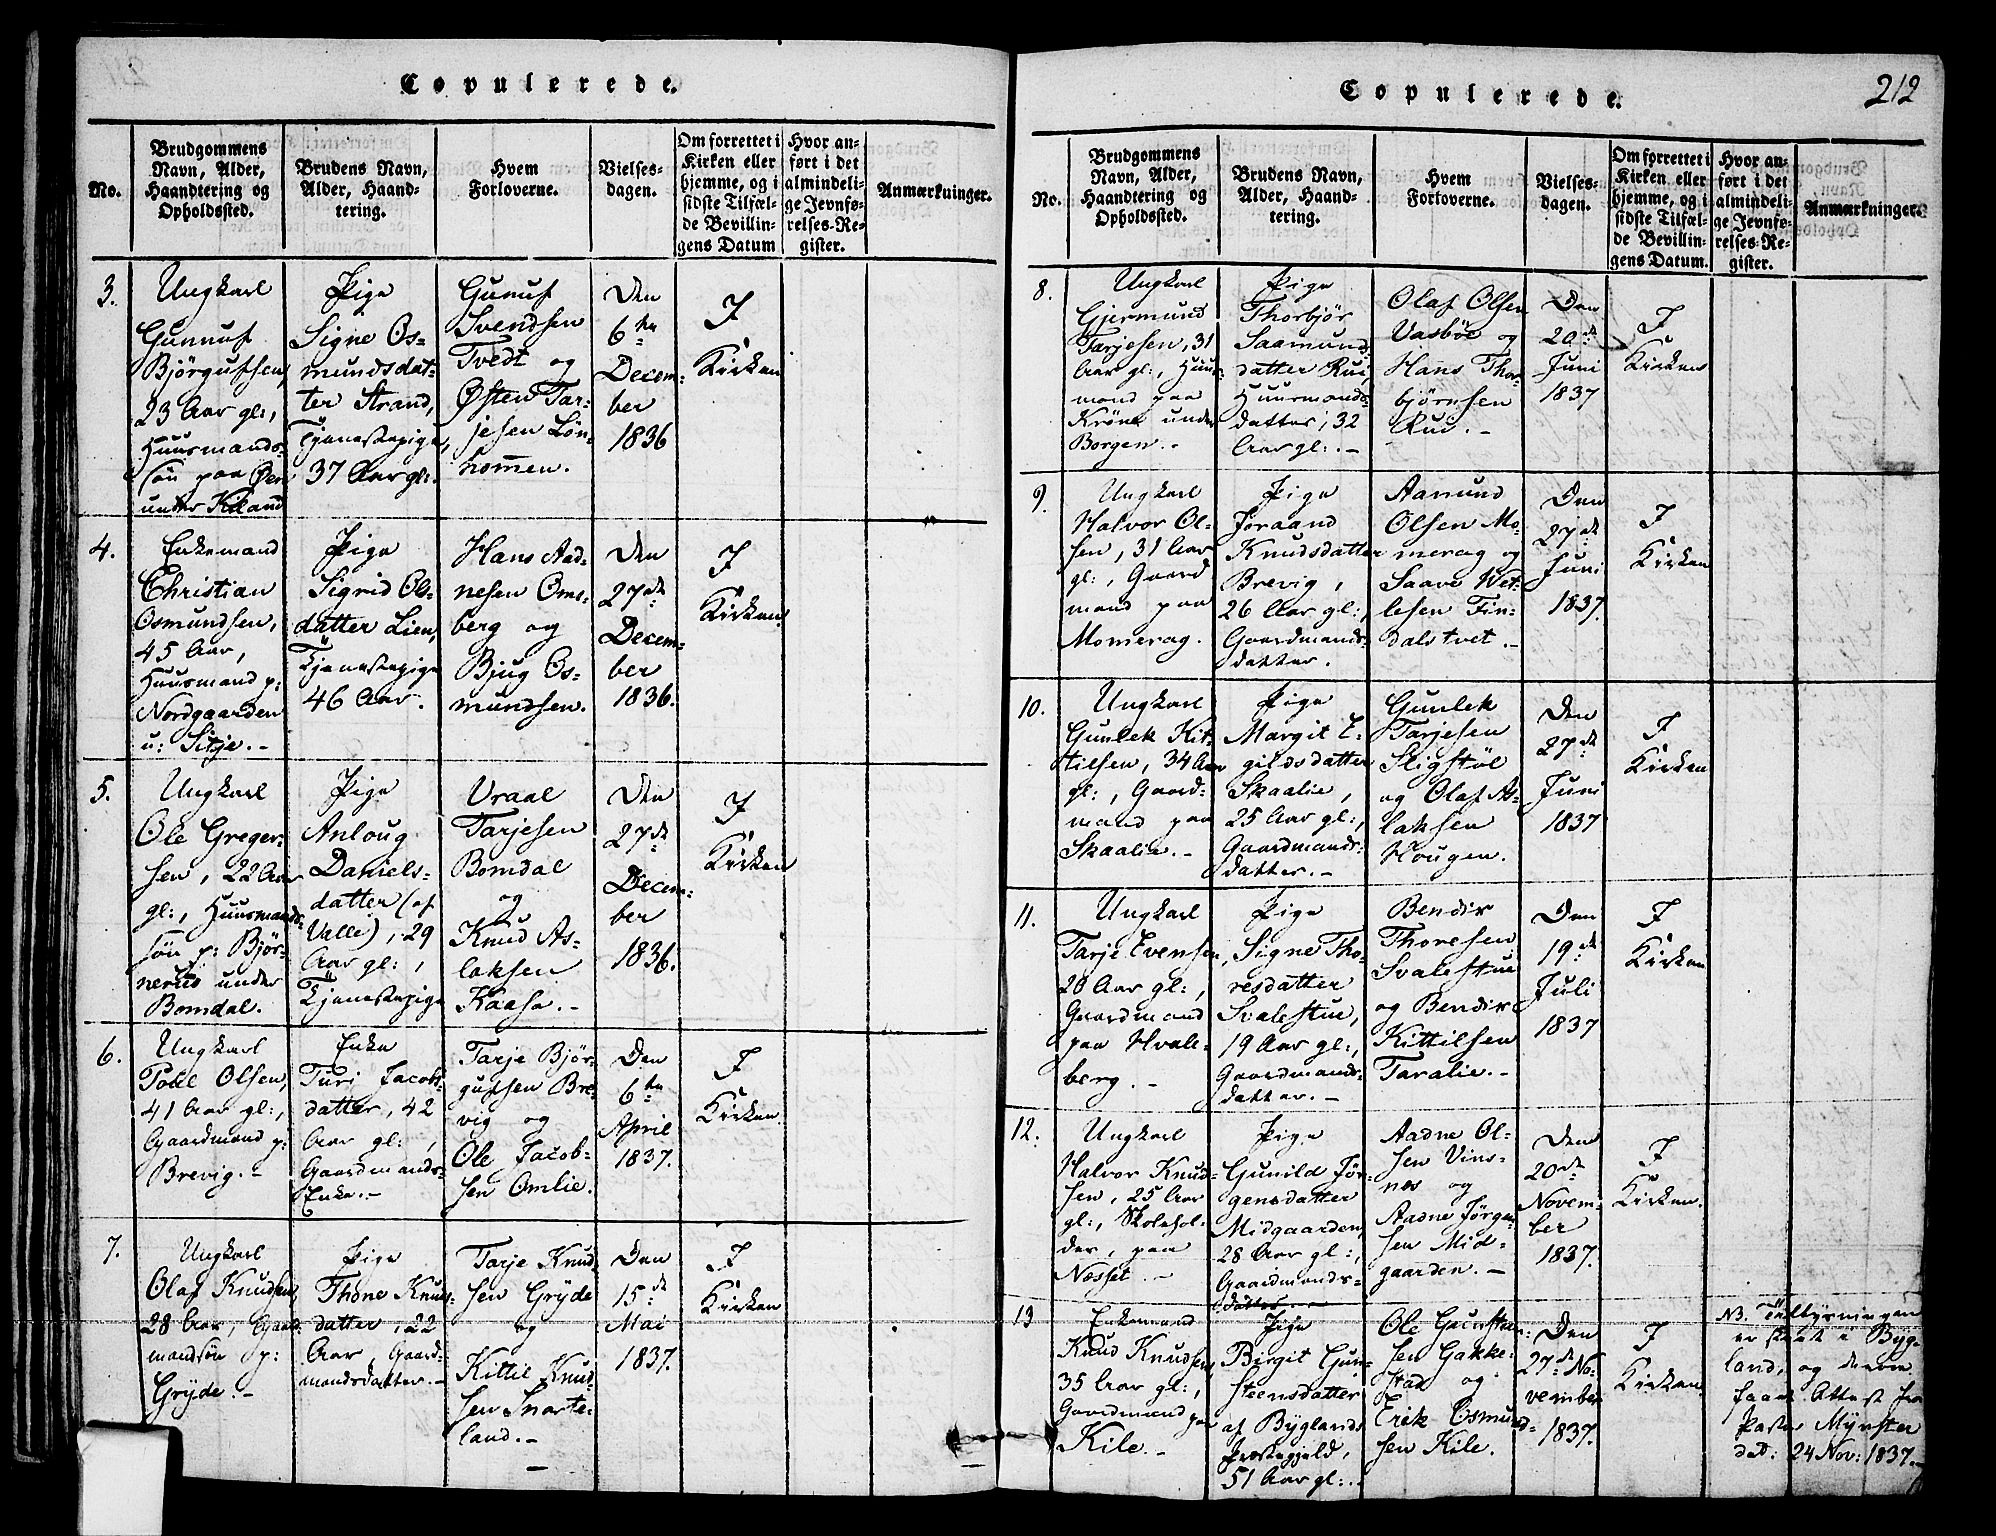 Copulerede.
No.
Brudgommens
Navn, Alder,
Haandtering og
Opholdssted.
Brudens Navn,
Alder, Haand-
tering.
Hvem
Forloverne.
Vielses-
dagen.
Om forrettet i
Kirken eller
hjemme, og i
sidste Tilfæl-
de Bevillin-
gens Datum
Hvor an-
ført i det
almindeli-
ge Jevnfø-
relses-Re-
gister.
Anmærkninger.
3.
Ungkarl
Gunnuf
Bjørgufsen,
23 Aar gl:,
Huusmands-
søn paa Øen
under Kiland
Pige
Signe Os-
mundsdat-
ter Strand,
Tjenestepige,
37 Aar gl:
Gunuf
Svendsen
Tvedt og
Østen Tar-
jesen Løn-
nomen.
Den
6te
Decem-
ber
1836
I
Kirken
4.
Enkemand
Christian
Osmundsen,
45 Aar,
Huusmand p:
Nordgaarden
u: Sitje.-
Pige
Sigrid Ols-
datter Lien,
Tjenestepige
46 Aar.
Hans Aad-
nesen Oms-
berg og
Bjug Os-
mundsen.
Den
27de
Decem-
ber
1836.
I
Kirken
5.
Ungkarl
Ole Greger-
sen, 22 Aar
gl:, Huusmands-
søn p: Bjør-
nerud under
Bomdal.
Pige
Anloug
Daniels-
datter (af
Valle), 29
Aar gl:,
Tjenestepige
Vraal
Tarjesen
Bomdal
og
Knud As-
laksen
Kaasa.-
Den
27de
Decem-
ber
1836.
I
Kirken
6.
Ungkarl
Poul Olsen,
41 Aar gl:,
Gaardmand p:
Brevig.-
Enke
Turi Jacobs-
datter, 42
Aar gl:,
Gaardmands-
Enke.-
Tarje Bjør-
gufsen Bre-
vig og
Ole Jacob-
sen Omlie.
Den
6te
April
1837.
I
Kirken
7.
Ungkarl
Olaf Knudsen,
28 Aar, Gaard-
mandsøn p:
Gryde.-
Pige
Thone Knuds-
datter, 22
Aar Gaard-
mandsdatter.-
Tarje Knud-
sen Gryde
og
Kittil Knud-
sen Snarte-
land.-
Den
15de
Mai
1837.
I
Kirken
Copulerede.
212
No.
Brudgommens
Navn, Alder,
Haandtering og
Opholdssted.
Brudens Navn,
Alder, Haand-
tering.
Hvem
Forloverne.
Vielses-
dagen.
Om forrettet i
Kirken eller
hjemme, og i
sidste Tilfæl-
de Bevillin-
gens Datum.
Hvor an-
ført i det
almindeli-
ge Jevnfø-
relses-Re-
gister.
Anmærkninger.
8.
Ungkarl
Gjermund
Tarjesen, 31
Aar gl:, Huus-
mand paa
Krone under
Borgen.-
Pige
Thorbjør
Saamunds-
datter Rui,
Huusmands-
datter, 32
Aar gl:.-
Olaf Olsen
Vasbøe og
Hans Thor-
bjørnsen
Rui.-
Den
20de
Juni
1837
I
Kirken
9.
Ungkarl
Halvor Ol-
sen, 31 Aar
gl:, Gaard-
mand paa
Momerag.
Pige
Joraand
Knudsdatter
Brevig,
26 Aar gl:,
Gaardmands-
datter.
Aamund
Olsen Mo-
merag og
Saave Vet-
lesen Fin-
dalstvet.-
Den
27de
Juni
1837.
I
Kirken
10.
Ungkarl
Gunlek Kit-
tilsen, 34 Aar
gl:, Gaard-
mand paa
Skaalie.-
Pige
Margit E-
gildsdatter
Skaalie,
25 Aar gl:,
Gaardmands-
datter.-
Gunlek
Tarjesen
Sligstøl
og Olaf As-
laksen
Hougen.
Den
27de
Juni
1837
I
Kirken
11.
Ungkarl
Tarje Evensen,
20 Aar gl:,
Gaardmand
paa Hvale-
berg.-
Pige
Signe Tho-
resdatter
Svalestue,
19 Aar gl:,
Gaardmands-
datter.-
Bendix
Thoresen
Svalestue
og Bendix
Kittilsen
Taralie.-
Den
19de
Juli
1837
I
Kirken
12.
Ungkarl
Halvor Knud-
sen, 25 Aar
gl:, Skolehol-
der, paa
Næsset.-
Pige
Gunild Jør-
gensdatter
Midgaarden,
28 Aar gl:,
Gaardmands-
datter.-
Aadne Ol-
sen Vins-
næs og
Aadne Jørgen-
sen Mid-
gaarden.-
Den
20de
Novem-
ber
1837.
I
Kirken.
13
Enkemand
Knud Knudsen,
35 Aar gl:,
Gaardmand paa
Kile.-
Pige
Birgit Gun-
steensdatter
af Byglands
Præstegjeld,
51 Aar gl:.-
Ole Gunsten-
sen Gakke-
stad og
Erik Osmund-
sen Kile.
Den
27de No-
vember
1837.
I
Kirken
NB. Tillysningen
er skeet i Byg-
land, og derom
havt Attest fra
Pastor Mynster
dat: 24 Nov: 1837.-